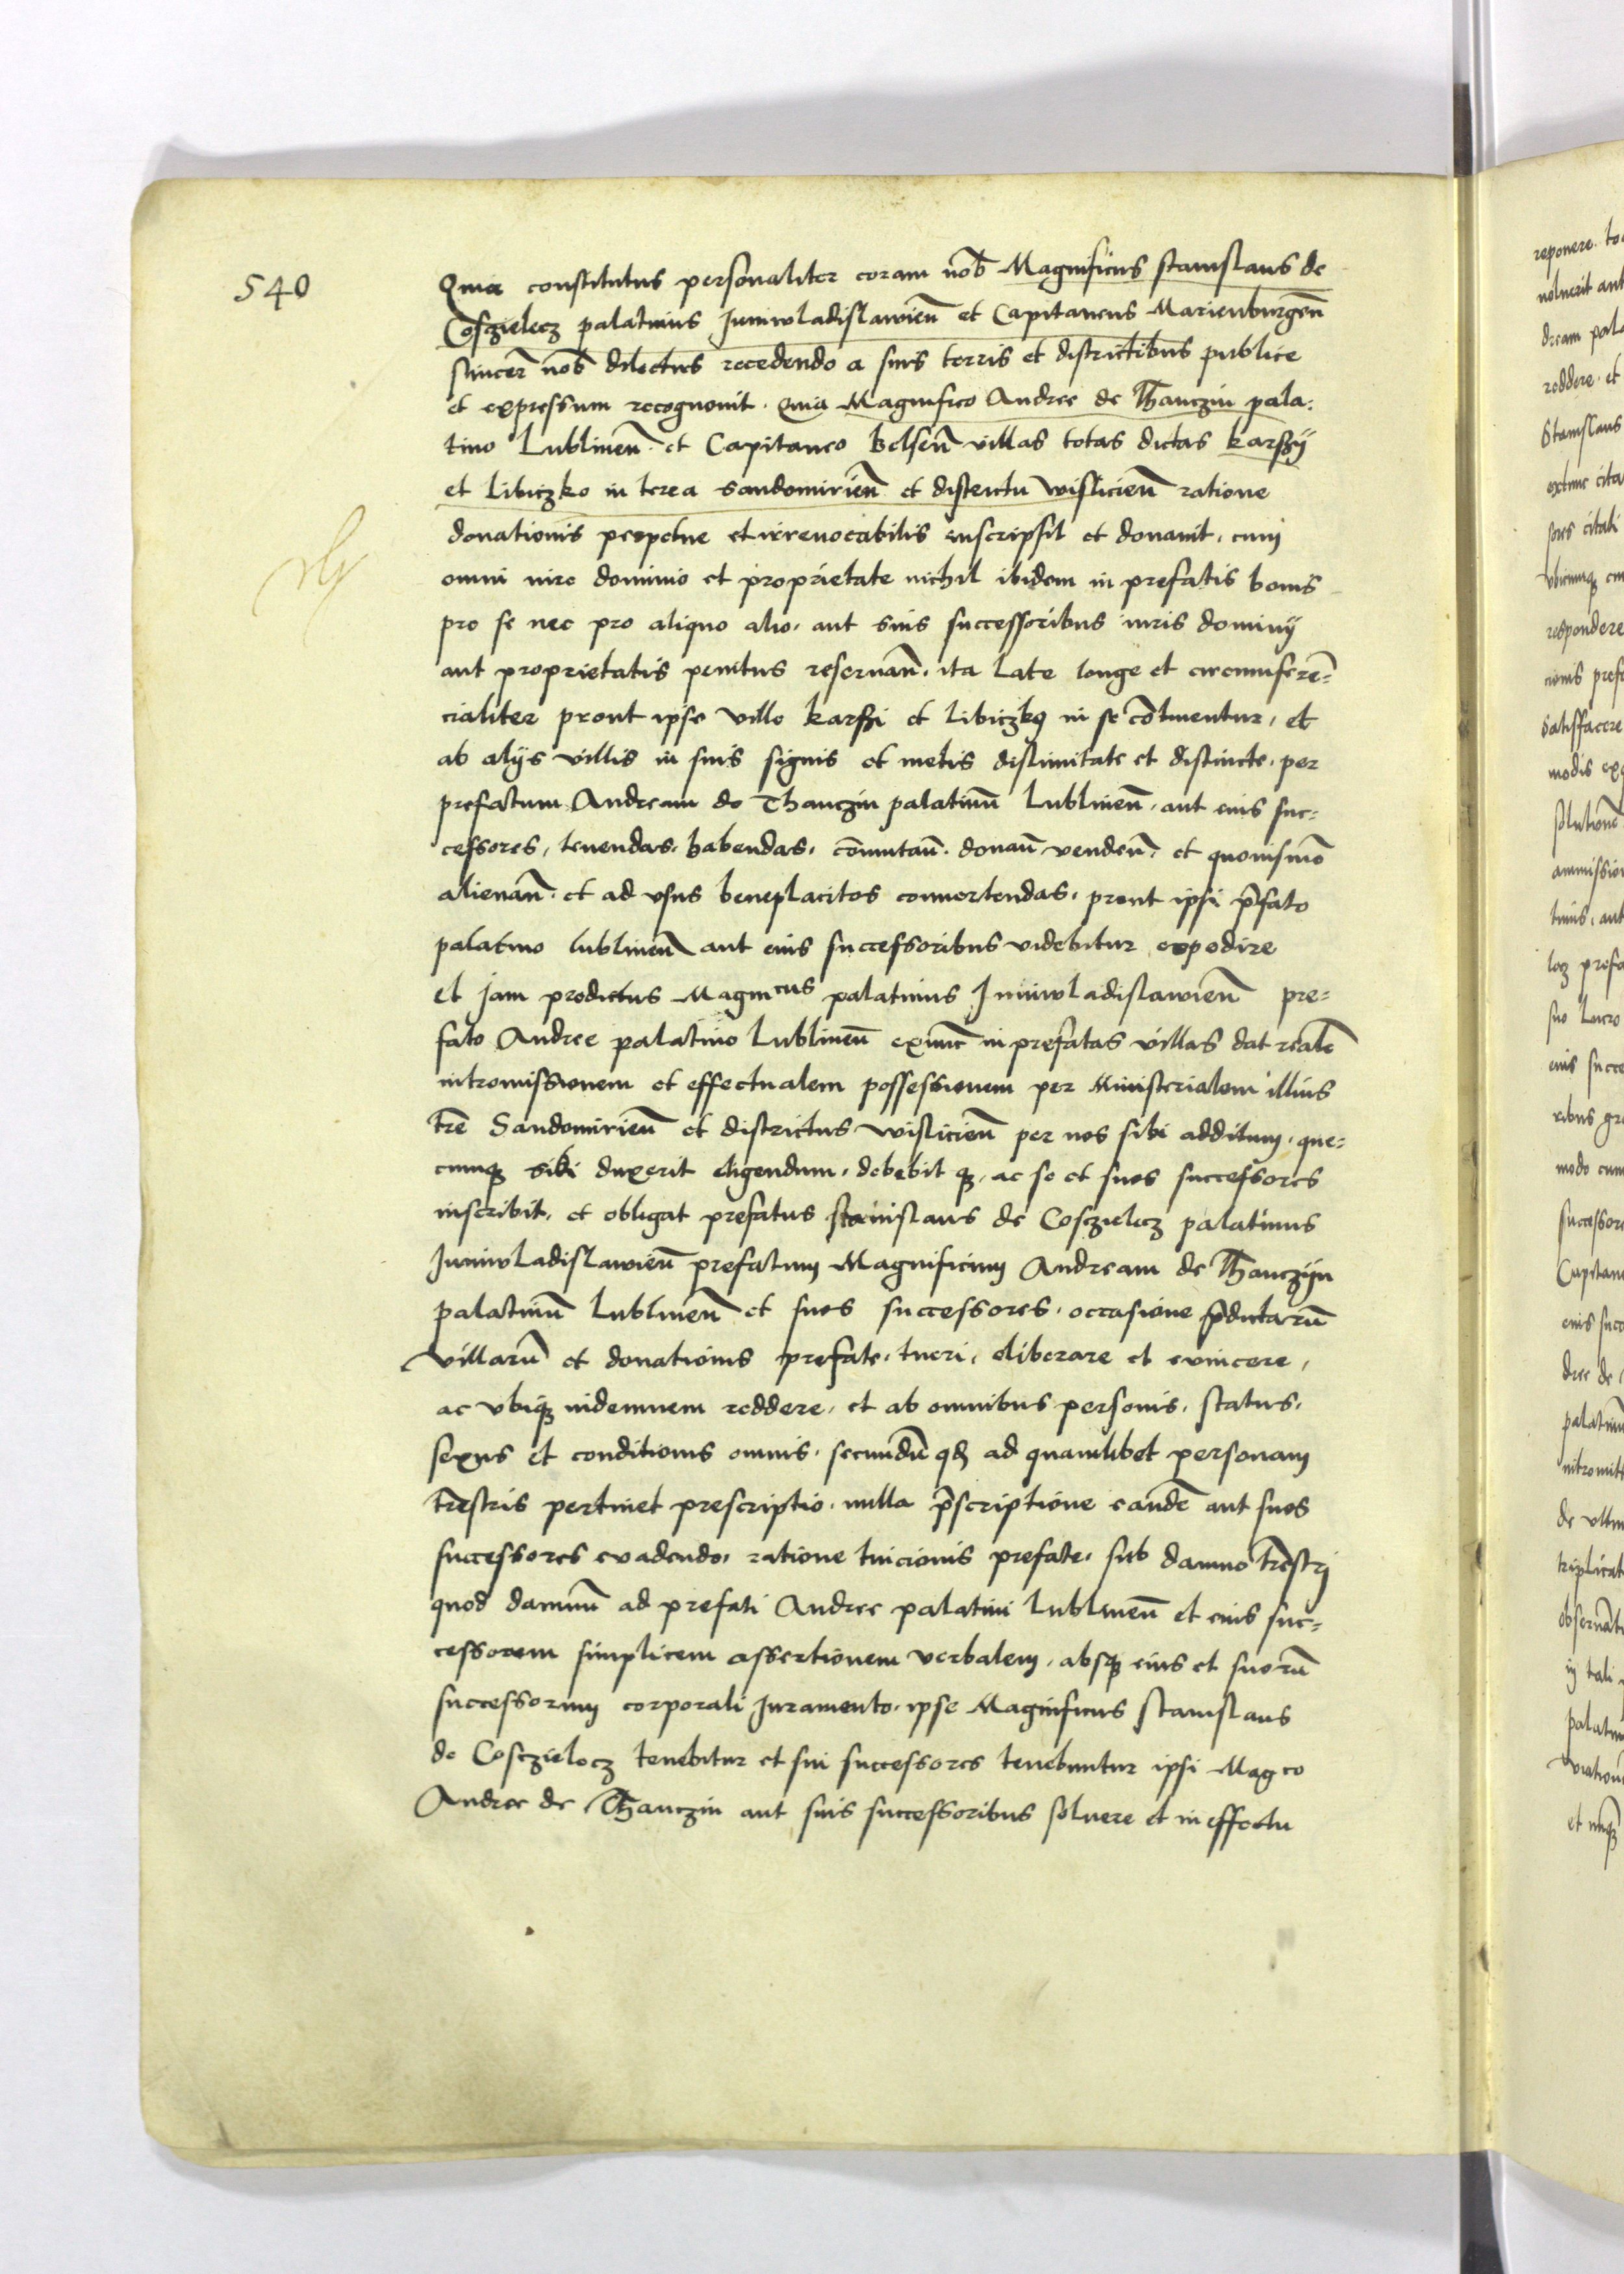 540
Quia constitutus personaliter coram nob̄ Magnificus stanislaus de
Cosczielecz palatinus Juniwladislawien̄ et Capitaneus Marienburgen̄
sincer̄ nob̄ dilectus recedendo a suis terris et districtibus publice
et expressum recognouit. Quia Magnifico Andree de Thanczin pala-
tino Lublinen̄ et Capitaneo Belsen̄ villas totas dictas karsy
et libiczko in terra sandomirien̄ et districtu wislicien̄ ratione
donationis perpetue et irreuocabilis inscripsit et donauit, cum
omni iure dominio et proprietate nichil ibidem in prefatis bonis
pro se nec pro aliquo alio, aut suis successoribus iuris dominij
aut proprietatis penitus reseruan̄. ita late longe et circumferen̄-
cialiter prout ipse ville karssi et libiczko in se cōtinentur, et
ab alijs villis in suis signis et metis dislimitate et distincte, per
prefatum Andream de Thanczin palatinū Lublinen̄. aut eius suc-
cessores, tenendas, habendas, cōmutan̄. donan̄ venden̄. et quouismō
alienan̄. et ad vsus beneplacitos conuertendas, prout ipsi p̄fato
palatino lublinen̄ aut eius successoribus videbitur expedire
et jam predictus Magnicus palatinus Juniwladislawien̄ pre-
fato Andree palatino Lublinen̄ exnunc in prefatas villas dat realē
intromissionem et effectualem possessionem per Ministerialem illius
tre̅ Sandomirien̄ et districtus wislicien̄ per nos sibi additum, que-
cumqꝫ sibi duxerit eligendum, debebit qꝫ, ac se et suos successores
inscribit, et obligat prefatus stanislaus de Cosczielecz palatinus
Juniwladislawien̄ prefatum Magnificum Andream de Thanczyn
palatinū Lublinen̄ et suos successores, occasione p̄dictarū
villarū et donationis prefate, tueri, eliberare et euincere,
ac vbiqꝫ indemnem reddere, et ab omnibus personis, status,
sexus et conditionis omnis, secundū qd̄ ad quamlibet personam
tre̅stris pertinet prescriptio, nulla p̄scriptione eandē aut suos
successores euadendo, ratione tuicionis prefate, sub damno tre̅stri
quod damnū ad prefati Andree palatini Lublinen̄ et eius suc-
cessorem simplicem assertionem verbalem, absqꝫ eius et suorū
successorum corporali Juramento, ipse Magnificus stanislaus
de Cosczielecz tenebitur et sui successores tenebuntur ipsi Magco
Andree de Thanczin aut suis successoribus soluere et in effectu